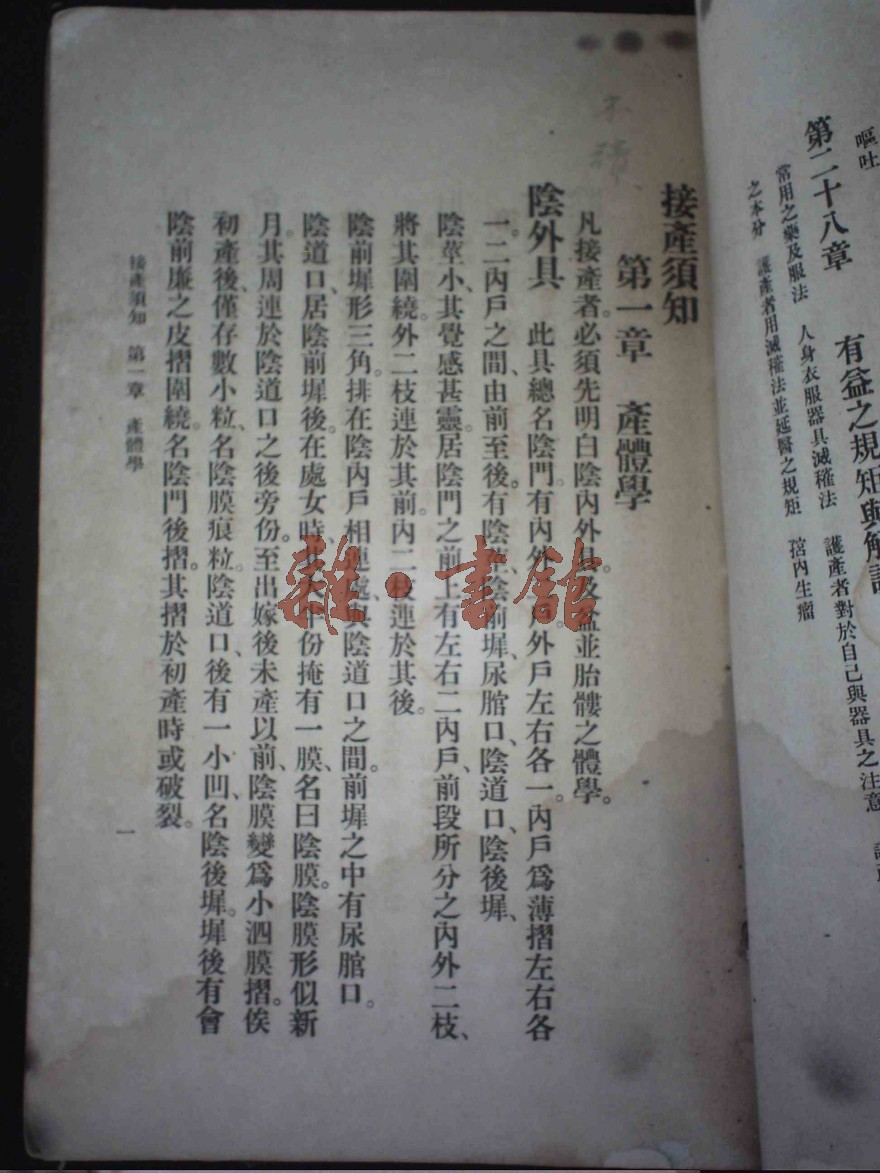 嘔吐
第二十八章 有益之規矩與解
常用之藥及服法 人身衣服器具滅穢法 護產者對於自己與器具之注意
之本分 護產者用滅穢法並延醫之規矩 內生瘤
接產須知
第一章 產體學
凡接產者、必須先明白陰內外具、及盆並胎髏之體學。
陰外具 此具總名陰門。有內外戶。外戶左右各一。內戶爲薄摺左右各
一。二內戶之間、由前至後。有陰莖、陰前墀、尿脗口、陰道口、陰後墀、
陰莖小、其覺感甚靈。居陰門之前上有左右二內戶、前段所分之內外二枝、
將其圍繞。外二枝連於其前。內二枝連於其後。
陰前墀形三角。排在陰內戶相連處、與陰道口之間。前墀之中有尿脗口。
陰道口、居陰前墀後。在處女時、份掩有一膜、名曰陰膜。陰膜形似新
月。其周連於陰道口之後旁份。至出嫁後未產以前、陰膜變爲小泗膜摺。俟
初產後、僅存數小粒、名陰膜痕粒。陰道口、後有一小凹、名陰後墀。墀後有會
陰前廉之皮摺圍繞。名陰門後摺。其摺於初產時或破裂。
接產須知 第一章 產體學
一
雜·書館